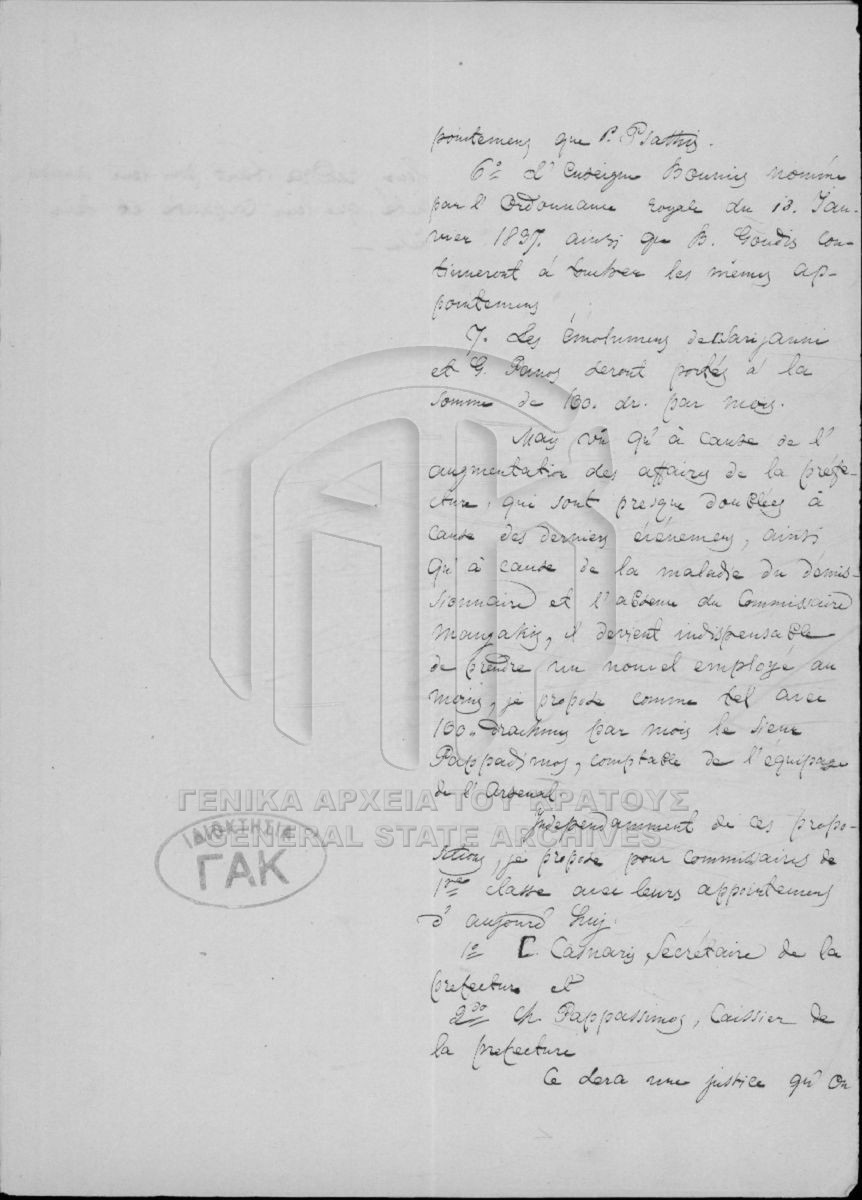 pointemens que P. Psathis.
6º L' Enseigne Bournis nommé
par l' Ordonnance royale du 13. Jan-
vier 1837. ainsi que B. Goudis con-
tinueront à toucher les mêmes ap-
pointemens
7. Les émolumens de
et G. Panos seront portés à la
somme de 160. dr. par mois.
Mais vû qu'à cause de l'
augmentation des affaires de la préfe-
cture, qui sont presque doublées à
cause des derniers évènemens, ainsi
qu'à cause de la maladie du démis-
sionnaire et l'absence du Commissaire
Manzakis, il devient indispensable
de prendre un nouvel employé au
moins, je propose comme tel avec
160. drachmes par mois le sieur
Pappadimos, comptable de l'équipage
de l' Arsenal.
ΓΕΝΙΚΑ ΑΡΧΕΙΑ ΤΟΥ ΚΡΑΤΟΥΣ
GENERAL STATE ARCHIVES
ΙΔΙΟΚΤΗΣΙΑ
ΓΑΚ
Independamment de ces propo-
sitions, je propose pour commissaires de
1re classe avec leurs appointemens
d' aujourd' huj.
1º C. Canaris, Secrétaire de la
prefecture et
2do Ch. Pappassimos, Caissier de
la prefecture
Ce sera une justice qu' on